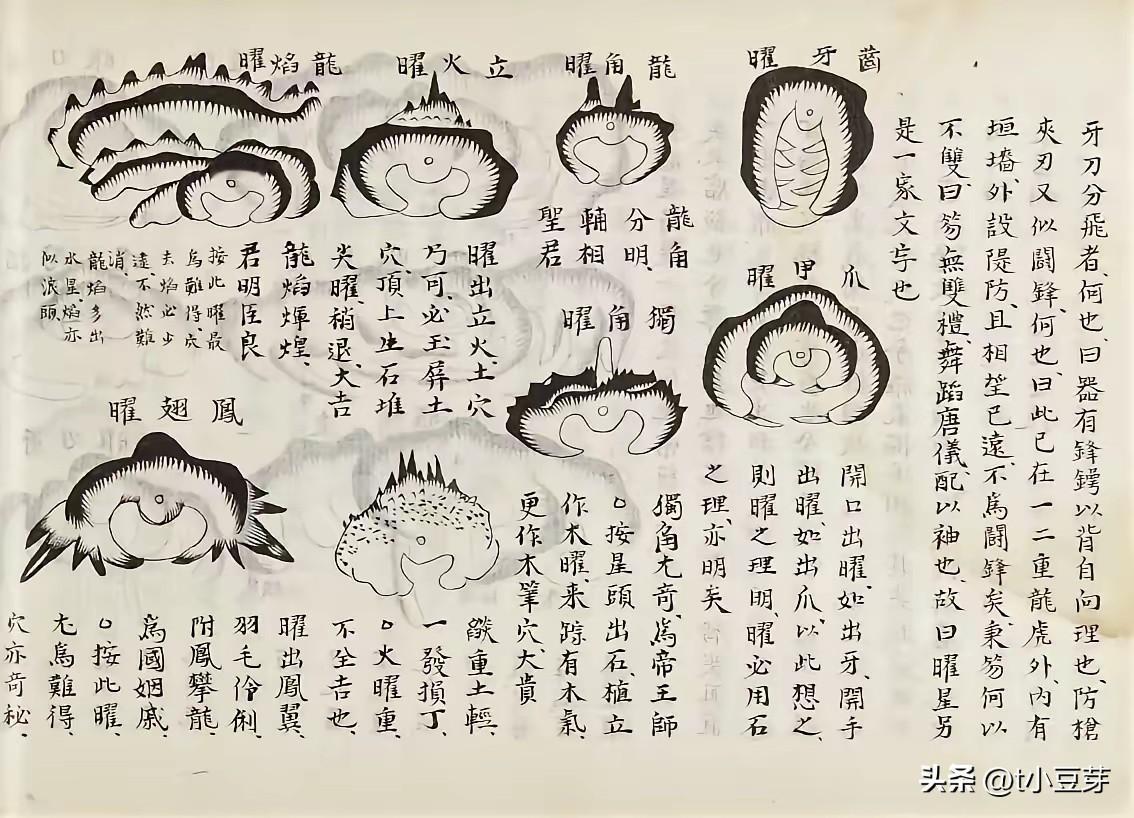 牙刀分飛者、何也、曰器有鋒鍔以背自向理也、防槍
夾刃又似鬪鋒、何也、曰此已在一二重龍虎外、內有
垣墻、外設隄防、且相去已遠、不爲鬪鋒矣、秉笏何以
不雙、曰笏無雙禮、舞蹈唐儀、配以袖也、故曰曜星另
是一家文字也
齒牙曜
爪甲曜
開口出曜、如出牙、開手
出曜、如出爪、以此想之、
則曜之理明、曜必用石
之理、亦明矣
龍角曜
龍角
分明、
輔相
聖君
獨角曜
獨角尤奇、爲帝王師
○按星頭出石、植立
作木曜、來踪有木氣、
更作木筆穴、大貴
立火曜
曜出立火、土穴
乃可、必玉屏土
穴、頂上生石堆
尖曜、稍退、大吉
燄重土輕、
一發損丁、
○火曜重、
不全吉也、
龍焰曜
龍焰煇煌、
君明臣良
按此曜最
爲難得、穴
去焰必步
遠、不然難
消、
龍焰多出
水星、焰亦
似浪
鳳翅曜
曜出鳳翼、
羽毛伶俐
附鳳攀龍、
爲國姻戚
○按此曜、
尤爲難得、
穴亦奇秘、
头条 @t小豆芽